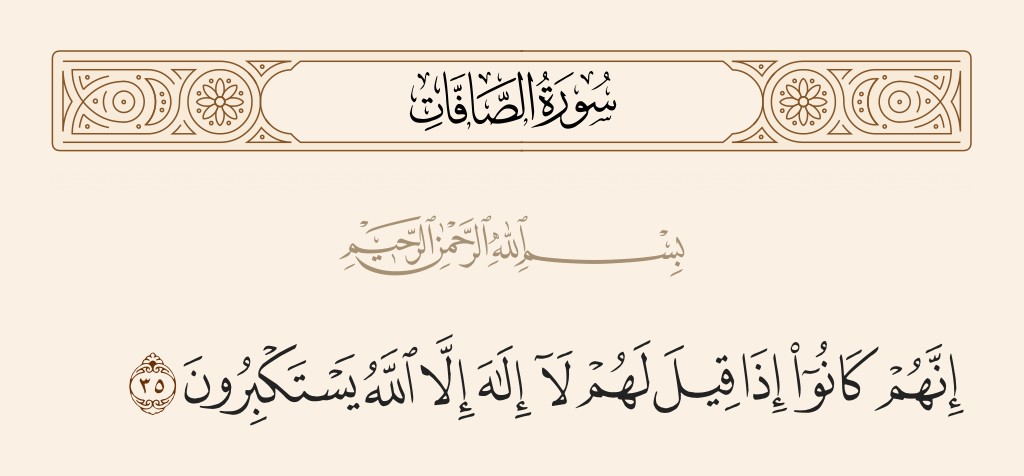 سُورَةُ الصَّافَّاتِ
بِسْمِ ٱللَّهِ ٱلرَّحْمَٰنِ ٱلرَّحِيمِ
إِنَّهُمْ كَانُوٓا۟ إِذَا قِيلَ لَهُمْ لَآ إِلَٰهَ إِلَّا ٱللَّهُ يَسْتَكْبِرُونَ ٣٥